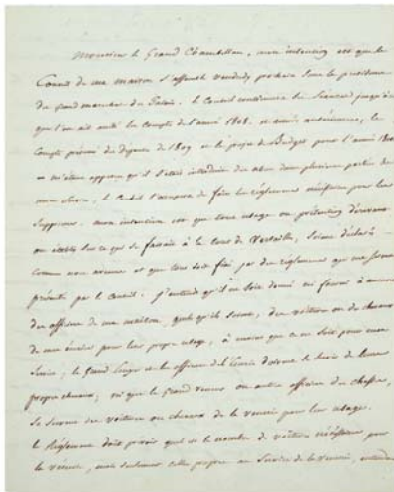 Monsieur le Grand Chambellan, mon intention est que le
Conseil de ma maison s'assemble vendredi prochain sous la présidence
du grand maréchal du Palais. Le Conseil continuera les séances jusqu'à ce
que l'on ait arrêté les comptes de l'année 1808. et années antérieures, le
compte présumé des dépenses de 1809 et le projet de Budget pour l'année 1810
m'étant apperçu qu'il s'était introduit des abus dans plusieurs parties de
mon service, le Conseil s'occupera de faire les règlements nécessaires pour leur
suppression. mon intention est que tous usages ou prétentions
ou établis sur ce qui se faisait à la Cour de Versailles, soient déclarés
comme non avenus et que tout soit fixé par des règlements qui me seront
présentés par le Conseil. j'entends qu'il ne soit donné ni fourni à aucun
des officiers de ma maison, quels qu'ils soient, des voitures ou des chevaux
de mes écuries pour leur propre usage, à moins que ce ne soit pour mon
service; le grand Ecuyer et les officiers de l'Ecurie doivent se servir de leurs
propres chevaux; ni que le Grand veneur ou autres officiers des chasses,
se servent des voitures ou chevaux de la vénerie pour leurs usages.
le Règlement doit prévoir quel est le nombre de voitures nécessaires pour
la vénerie, non seulement celles propres au Service de la vénerie,